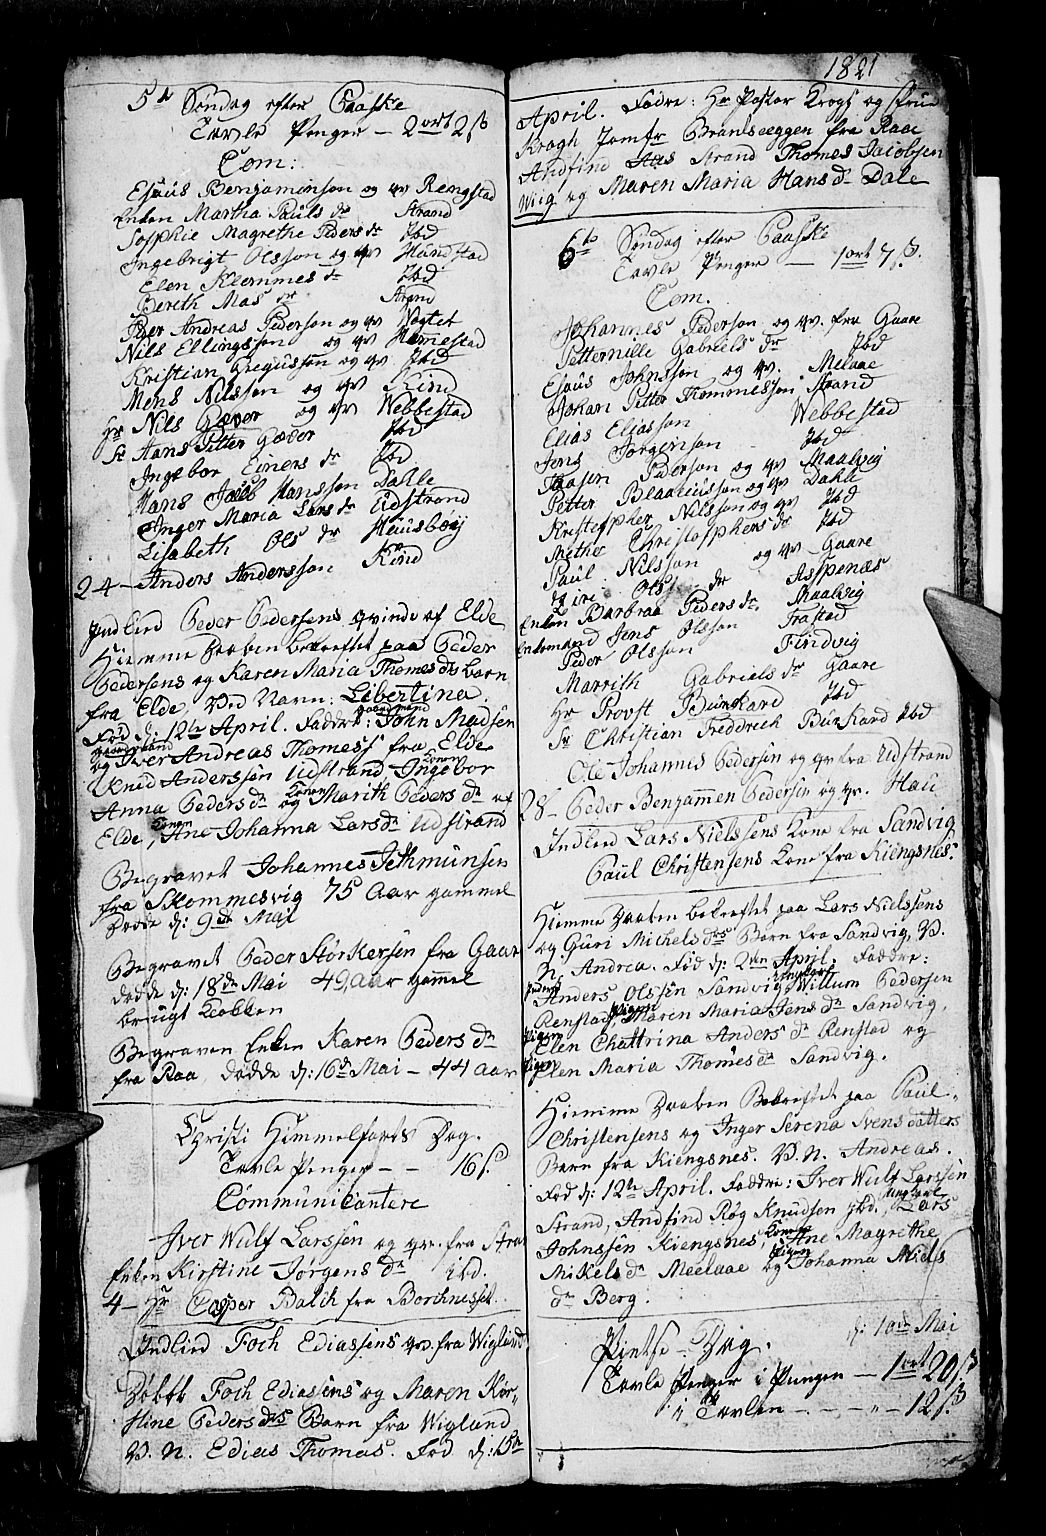 5te Søndag efter Paaske
Tavle Penger — 2 ort 2 s
Com:
Esaus Bengaminson og qv Rengstad
Enken Martha Pauls dr Strand
Sophie Magrethe Peders dr Ibd
Ingebrigt Olsson og qv Hundstad
Elen Klemmes dr Ibd
Bereth Mas dr Strand
Peer Andreas Pederson og qv Vogter
Nils Ellingsson og qv Hamestad
Kristian Gregusson og qv Ibd
Mons Nilsson og qv Kind
Hr Nils Gæver og qv Webbestad
Sr Hans Petter Gæver Ibd
Ingebor Einers dr Ibd
Hans Jacob Hansson Dahle
Inger Maria Lars dr Udstrand
Lisabeth Ols dr Huusbøy
24 — Anders Andersson Kind
Indlied Peder Pedersens qvinde af Elde
Hiemme Daaben bekreftet paa Peder
Pedersens og Karen Maria Thomes drs barn
fra Elde, Ved Navn: Libertina.
Fød d: 12te April. Faddre: gaardmand John Madsen
gaardmand og Iver Andreas Thomess fra Elde
Knud Anderssen Udstrand, Konen Ingebor
Anna Peders dr og Konen Marith Peders dr af
Elde, Konen Ane Johanna Lars dr Udstrand
Begravet Johannes Jethmunsen
fra Skommesvig 75 Aar gammel
Døde d: 9de Maj
Begravet Peder Størkersen fra Gaar
døde d: 18de Mai 49 Aar gammel
brugt Klokken
Begraven Enken Karen Peders dr
fra Raa, døde d: 16de Mai — 44 Aar
Christi Himmelfarts Dag.
Tavle Penger — — 16 s
Communicantere
Iver Wulf Larssen og qv. fra Stra
Enken Kirstine Jørgens dr ibd.
4 — Hr Casper Balch fra Borkneset.
Indlied Foch Ediassens qv. fra Wiglund
Døbt Foch Ediassens og Maren Kør-
stine Peders drs Barn fra Wiglund
V. N. Edias Thomas. Fød d: 15de
1821
April. Fadre: Hr Pastor Krogs og frue
Kragh Jomfr Brandseeggen fra Raae
Andfind Aas Strand Thomes Jacobsen
Wiig og Maren Maria Hans dr Dale
6te Søndag efter Paaske
Tavle Penger — 1 ort 7 s.
Com.
Johannes Pederson og qv. fra Gaare
Petternille Gabriels dr Ibd
Esaus Johnsson og qv. Melaae
Johan Petter Thommesson Strand
Elias Eliasson Webbestad
Jens Jørgenson Ibd
Paason Pederson og qv Maalvig
Petter Blaaciusson og qv Dahle
Kristopher Nilsson og qv Ibd
Methe Christophers dr Ibd
Paul Nilsson og qv Gaare
Ols dr Aspenæs
Enken Barbraa Peders dr. Maalvig
Enkemand Jens Olsson Trastad
Peder Olsson Findvig
Marrith Gabriels dr Gaare
Hr Provst Burchard Ibd
Sr Christian Freddrich Burkard Ibd
Ole Johannes Pedersen og qv fra Udstrand
28 — Peder Benjammen Pedersen og qv. Hau
Indlied Lars Nielssens Kone fra Sandvig
Paul Christensens Kone fra Kiengsnes.
Hiemme Daaben bekreftet paa Lars Nielssens
og Guri Michels drs Barn fra Sandvig, V.
N. Andrea. Fød d: 2den April. Faddre:
Anders Olssen Sandvig, Ungkarl Willum Pedersen
Renstad, Pigen Maren Maria Jens dr Sandvig,
Pigen Elen Chattrina Anders dr Renstad og
Pigen Elen Maria Thomes dr Sandvig.
Hiemme Daaben Bekreftet paa Paul
Christensens og Inger Serena Svens datters
Barn fra Kiengsnes. V. n. Andreas.
Fød d: 12te April. Faddre: Iver Wulf Larssen
Strand, Andfind Røg Knudsen Ibd. Ungkarl Lars
Johnssen Kiengsnes, Konen Ane Magrethe
Mikels dr Meelaae og Pigen Johanna Niels
dr Berg.
d: 10de Mai
Pintse Dag.
Tavle Penger i Pungen — 1 ort 20 s
i Tavlen - - - „ - 12 s